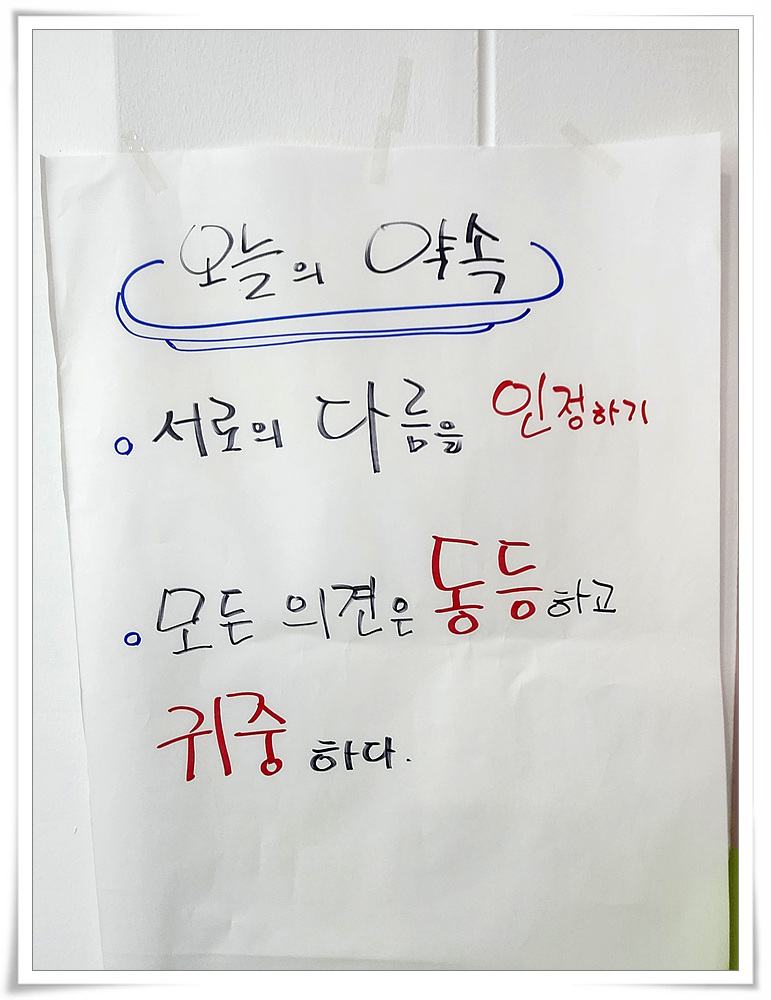 오늘의 약속
o 서로의 다름을 인정하기
o 모든 의견은 동등하고
귀중하다.